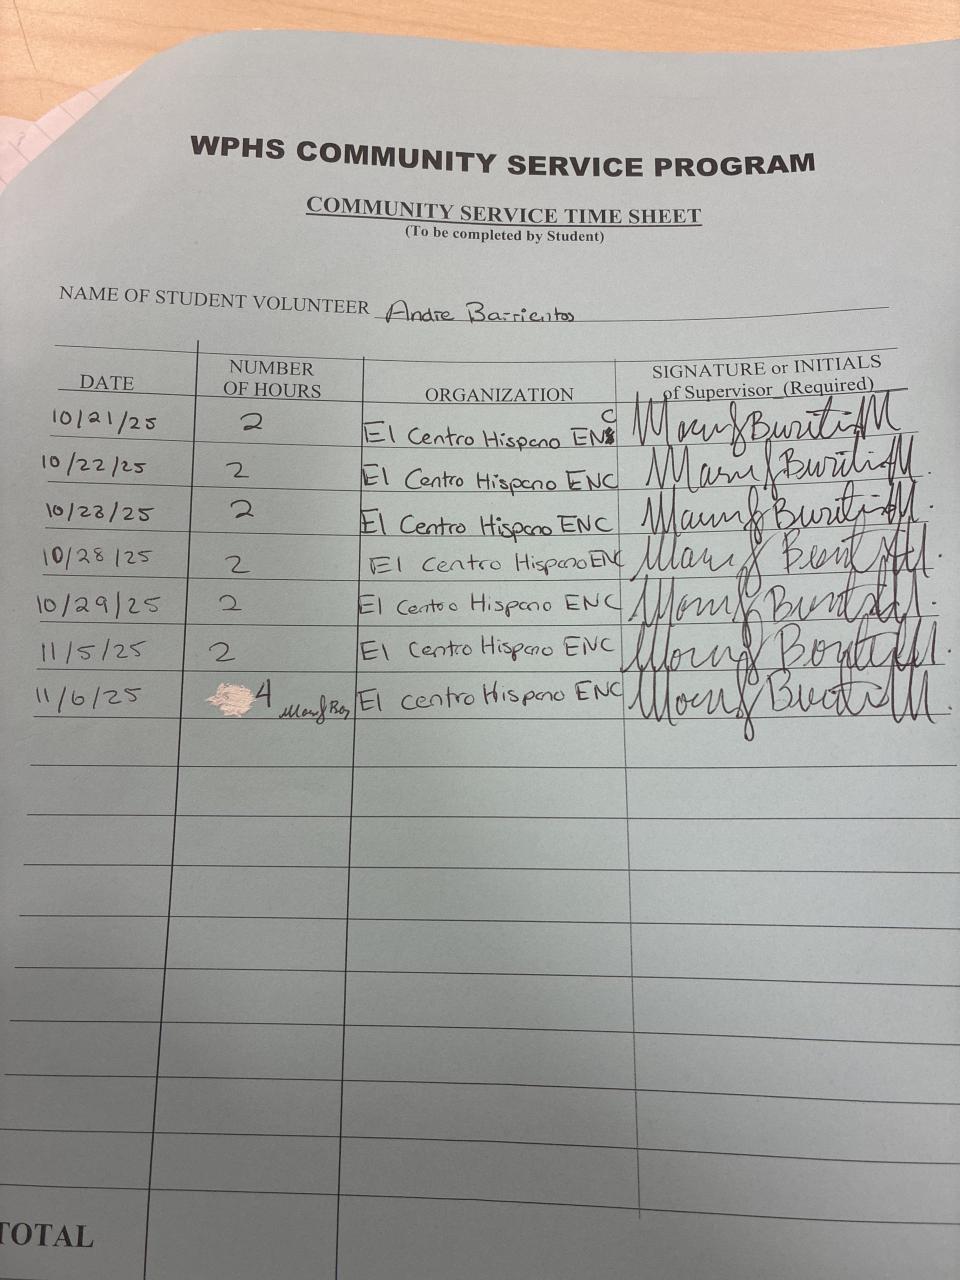 WPHS COMMUNITY SERVICE PROGRAM
COMMUNITY SERVICE TIME SHEET
(To be completed by Student)
NAME OF STUDENT VOLUNTEER Andre Barrientos
DATE NUMBER OF HOURS ORGANIZATION SIGNATURE or INITIALS of Supervisor (Required)
10/21/25 2 El Centro Hispano ENC
10/22/25 2 El Centro Hispano ENC
10/23/25 2 El Centro Hispano ENC
10/28/25 2 El Centro Hispano ENC
10/29/25 2 El Centro Hispano ENC
11/5/25 2 El Centro Hispano ENC
11/6/25 4 El Centro Hispano ENC
TOTAL